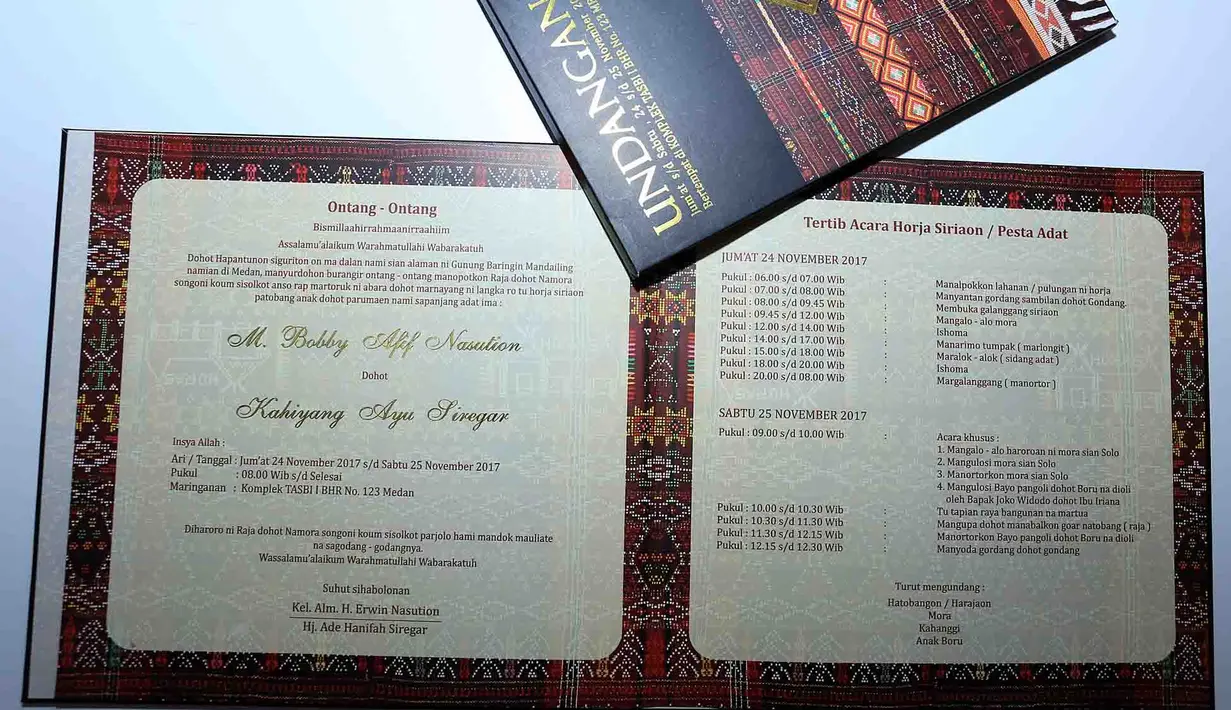 UNDANGAN
Jum'at s/d Sabtu , 24 s/d 25 November
Bertempat di KOMPLEK TASBI I BHR No. 123
Ontang - Ontang
Bismillaahirrahmaanirraahiim
Assalamu'alaikum Warahmatullahi Wabarakatuh
Dohot Hapantunon siguriton on ma dalan nami sian alaman ni Gunung Baringin Mandailing
namian di Medan, manyurdohon burangir ontang - ontang manopotkon Raja dohot Namora
songoni koum sisolkot anso rap martoruk ni abara dohot marnayang ni langka ro tu horja siriaon
patobang anak dohot parumaen nami sapanjang adat ima :
M. Bobby Afif Nasution
Dohot
Kahiyang Ayu Siregar
Insya Allah :
Ari / Tanggal : Jum'at 24 November 2017 s/d Sabtu 25 November 2017
Pukul : 08.00 Wib s/d Selesai
Maringanan : Komplek TASBI I BHR No. 123 Medan
Diharoro ni Raja dohot Namora songoni koum sisolkot parjolo hami mandok mauliate
na sagodang - godangnya.
Wassalamu'alaikum Warahmatullahi Wabarakatuh
Suhut sihabolonan
Kel. Alm. H. Erwin Nasution
Hj. Ade Hanifah Siregar
Tertib Acara Horja Siriaon / Pesta Adat
JUM'AT 24 NOVEMBER 2017
Pukul : 06.00 s/d 07.00 Wib : Manalpokkon lahanan / pulungan ni horja
Pukul : 07.00 s/d 08.00 Wib : Manyantan gordang sambilan dohot Gondang.
Pukul : 08.00 s/d 09.45 Wib : Membuka galanggang siriaon
Pukul : 09.45 s/d 12.00 Wib : Mangalo - alo mora
Pukul : 12.00 s/d 14.00 Wib : Ishoma
Pukul : 14.00 s/d 17.00 Wib : Manarimo tumpak ( marlongit )
Pukul : 15.00 s/d 18.00 Wib : Maralok - alok ( sidang adat )
Pukul : 18.00 s/d 20.00 Wib : Ishoma
Pukul : 20.00 s/d 08.00 Wib : Margalanggang ( manortor )
SABTU 25 NOVEMBER 2017
Pukul : 09.00 s/d 10.00 Wib : Acara khusus :
1. Mangalo - alo haroroan ni mora sian Solo
2. Mangulosi mora sian Solo
3. Manortorkon mora sian Solo
4. Mangulosi Bayo pangoli dohot Boru na dioli
oleh Bapak Joko Widodo dohot Ibu Iriana
Pukul : 10.00 s/d 10.30 Wib : Tu tapian raya bangunan na martua
Pukul : 10.30 s/d 11.30 Wib : Mangupa dohot manabalkon goar natobang ( raja )
Pukul : 11.30 s/d 12.15 Wib : Manortorkon Bayo pangoli dohot Boru na dioli
Pukul : 12.15 s/d 12.30 Wib : Manyoda gordang dohot gondang
Turut mengundang :
Hatobangon / Harajaon
Mora
Kahanggi
Anak Boru